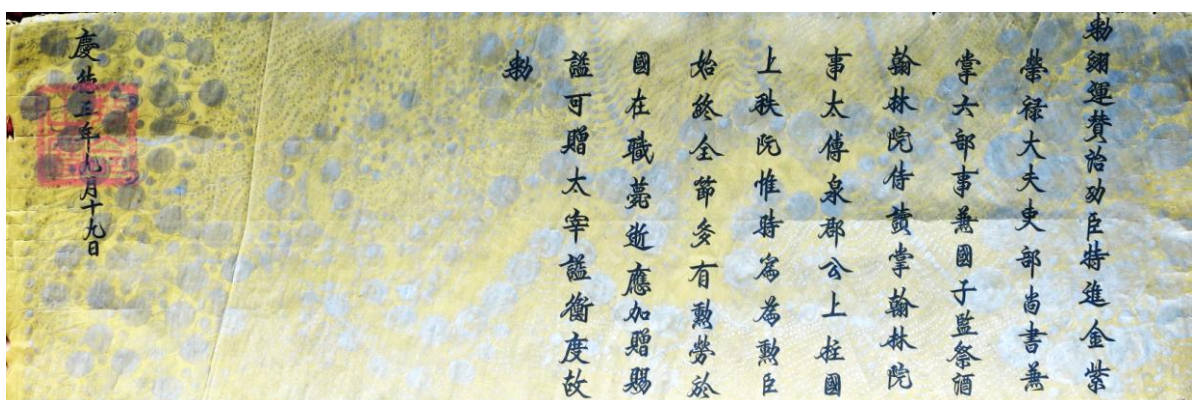 勑翊運賛治功臣特進金紫
榮禄大夫吏部尚書兼
掌六部事兼國子監祭酒
翰林院侍讀掌翰林院
事太傅泉郡公上柱國
上秩阮惟時爲為勲臣
始終全節多有勲勞於
國在職薨逝應加贈賜
謚可贈太宰謚衡度故
勑
慶德三年九月十九日